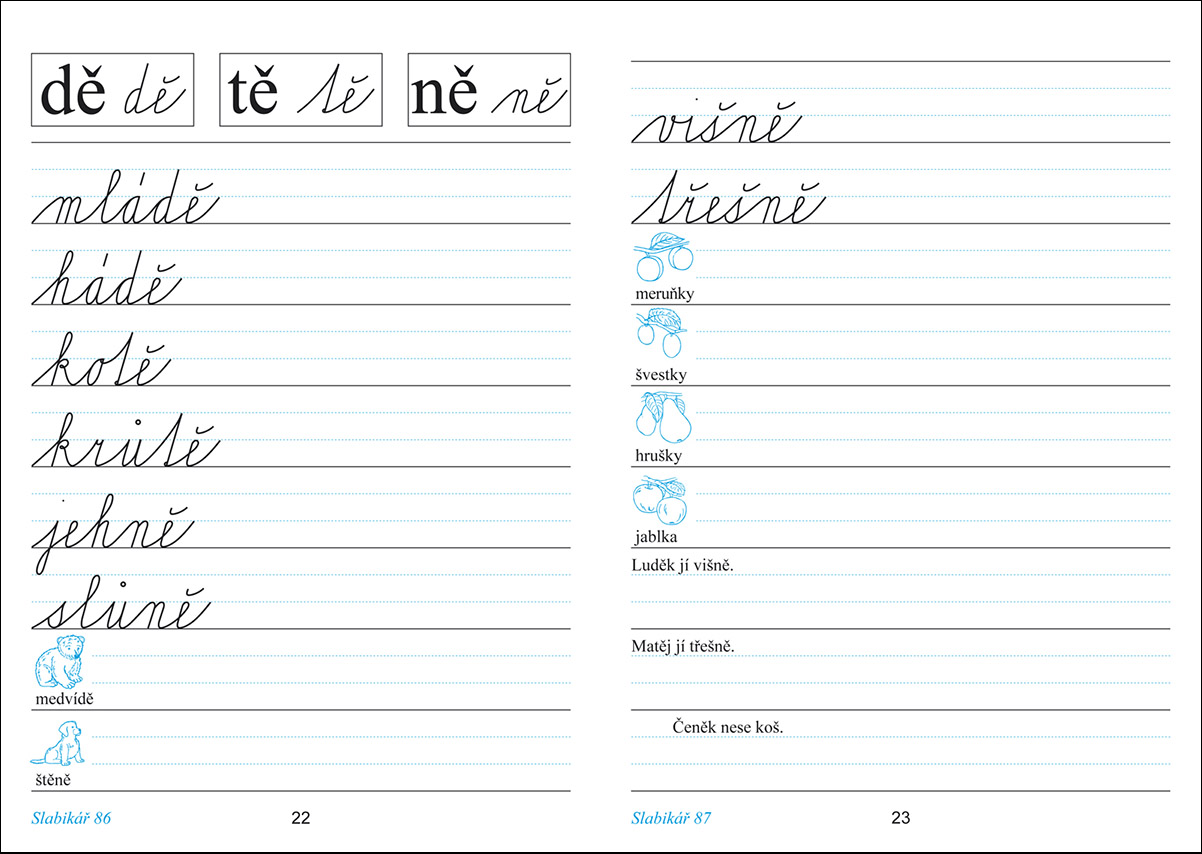 dě dě tě tě ně ně
mládě
hádě
kotě
krůtě
jehně
slůně
medvídě
štěně
Slabikář 86
22
višně
třešně
meruňky
švestky
hrušky
jablka
Luděk jí višně.
Matěj jí třešně.
Čeněk nese koš.
Slabikář 87
23